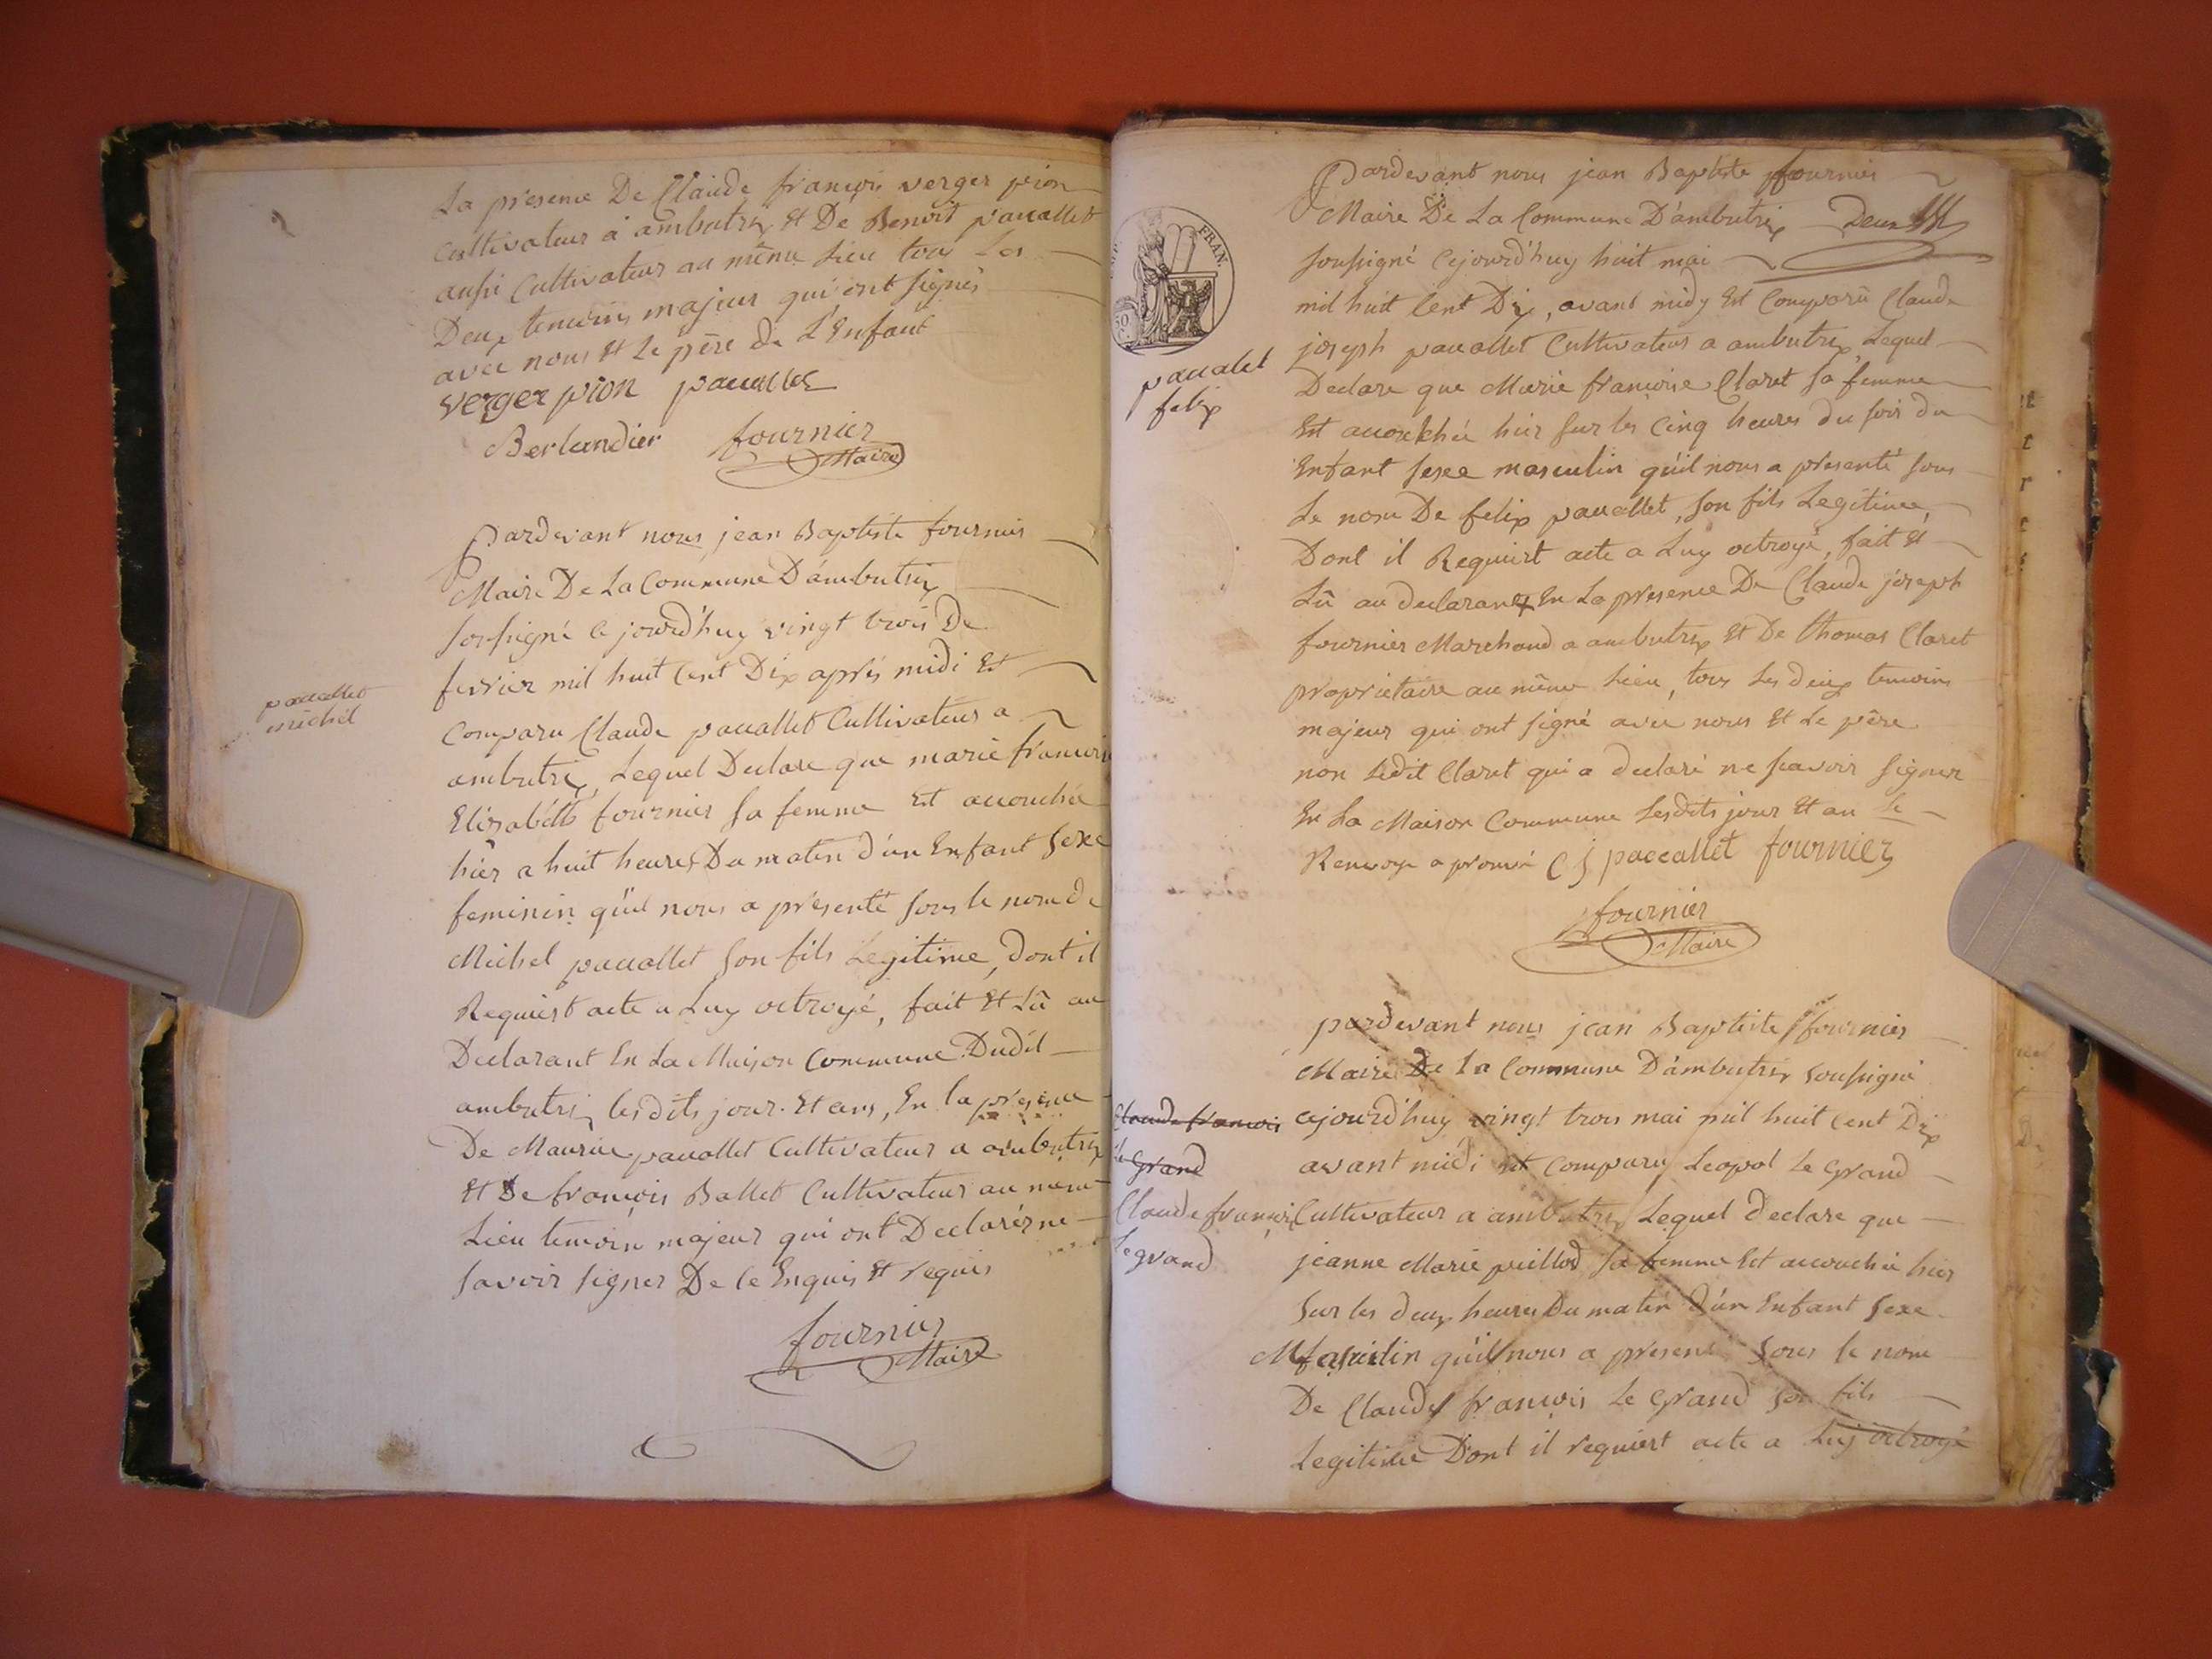 La presence De Claude françois verger pion
cultivateur à ambutrix Et De Benoit paccallet
aussi Cultivateur au même Lieu tous Les
Deux temoins majeur qui ont signés
avec nous Et Le père de L'Enfant
verger pion paccallet
Berlandier fournier
Maire
Pardevant nous jean Baptiste fournier
Maire De La Commune D'ambutrix
soussigné cejourd'huy vingt trois De
fevrier mil huit Cent Dix après midi Est
Comparu Claude paccallet Cultivateur a
ambutrix, Lequel Declare que marie francoise
Elisabeth fournier sa femme Est accouchée
hier a huit heures Du matin d'un Enfant sexe
feminin qu'il nous a présenté sous le nom de
Michel paccallet son fils Legitime, dont il
Requiert acte a Luy octroyé, fait Et Lû au
Declarant En La Maison Commune Dudit
ambutrix lesdits jour Et ans, En la présence
De Maurice paccallet Cultivateur a ambutrix
Et De françois Ballet Cultivateur au meme
Lieu temoin majeur qui ont Declaréz ne
savoir signer De ce Enquis Et requis
fournier
Maire
paccallet
michel
Pardevant nous jean Baptiste fournier
Maire De La Commune D'ambutrix Deux
soussigné Cejourd'huy huit mai
mil huit Cent Dix, avant midy Est Comparû Claude
joseph paccallet Cultivateur a ambutrix, Lequel
Declare que Marie francoise Claret sa femme
Est accouchée hier sur les Cinq heures du soir du
Enfant sexe masculin qu'il nous a presenté sous
Le nom De felix paccallet, son fils Legitime,
Dont il Requiert acte a Luy octroyé, fait Et
Lû au declarant + En La presence De Claude joseph
fournier Marchand a ambutrix Et De thomas Claret
proprietaire au même Lieu, tous Les deux temoins
majeur qui ont signé avec nous Et Le père
non Ledit Claret qui a declaré ne scavoir signer
En La Maison Commune Lesdits jour Et an Le
Renvoye aprouvé C j paccallet fournier
fournier
Maire
FRAN.
paccalet
felix
pardevant nous jean Baptiste fournier
Maire De la Commune D'ambutrix soussigné
cejourd'huy vingt trois mai mil huit Cent Dix
avant midi est Comparu Leopol Le Grand
Cultivateur a ambutrix Lequel declare que
jeanne Marie puillod sa femme Est accouchée hier
sur les deux heures Du matin d'un Enfant sexe
Masculin qu'il nous a présenté sous le nom
De Claude françois Le Grand son fils
Legitime Dont il requiert acte a Luy octroyé
Claude francois
le Grand
Claude françois
Le grand